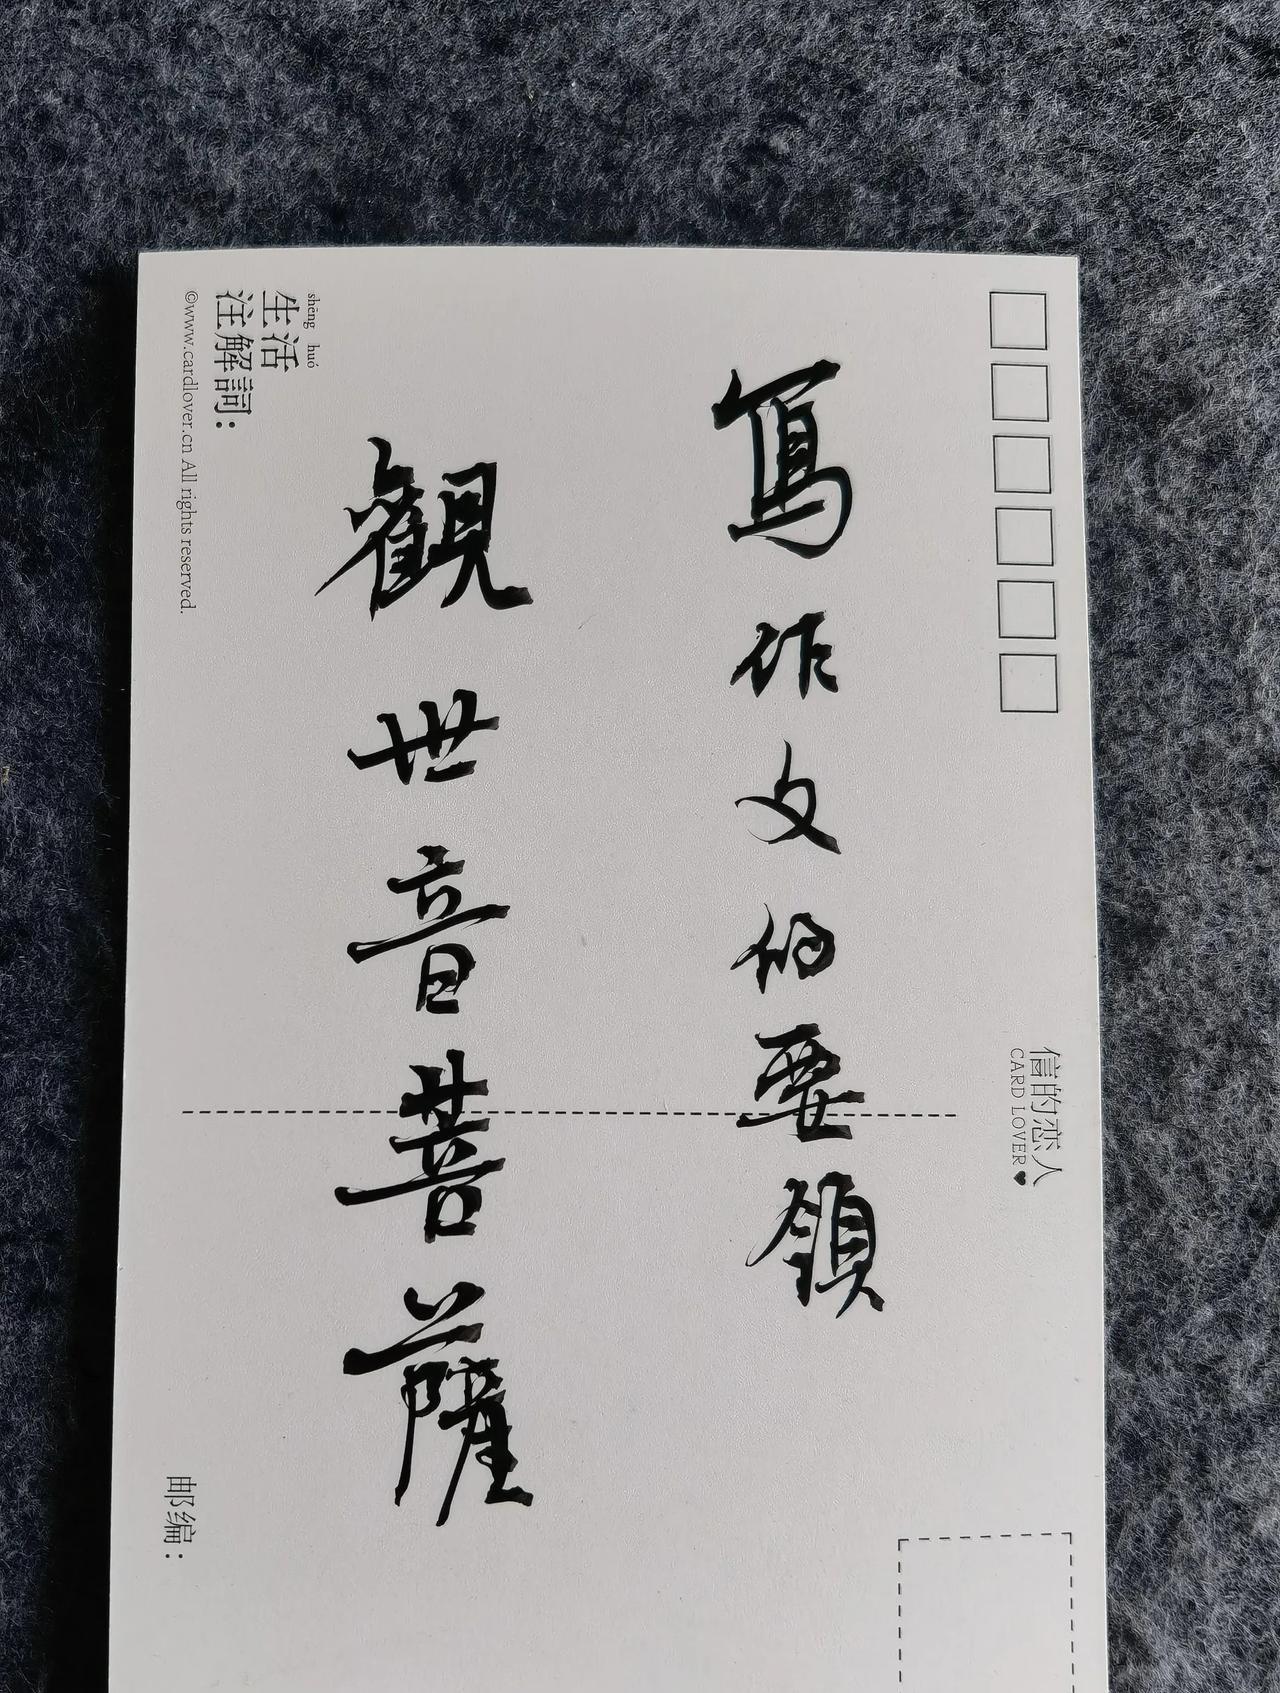 寫作文的要領
觀世音菩薩
信的恋人
CARD LOVER
shēng huó
生活
注解詞：
©www.cardlover.cn All rights reserved.
邮编：